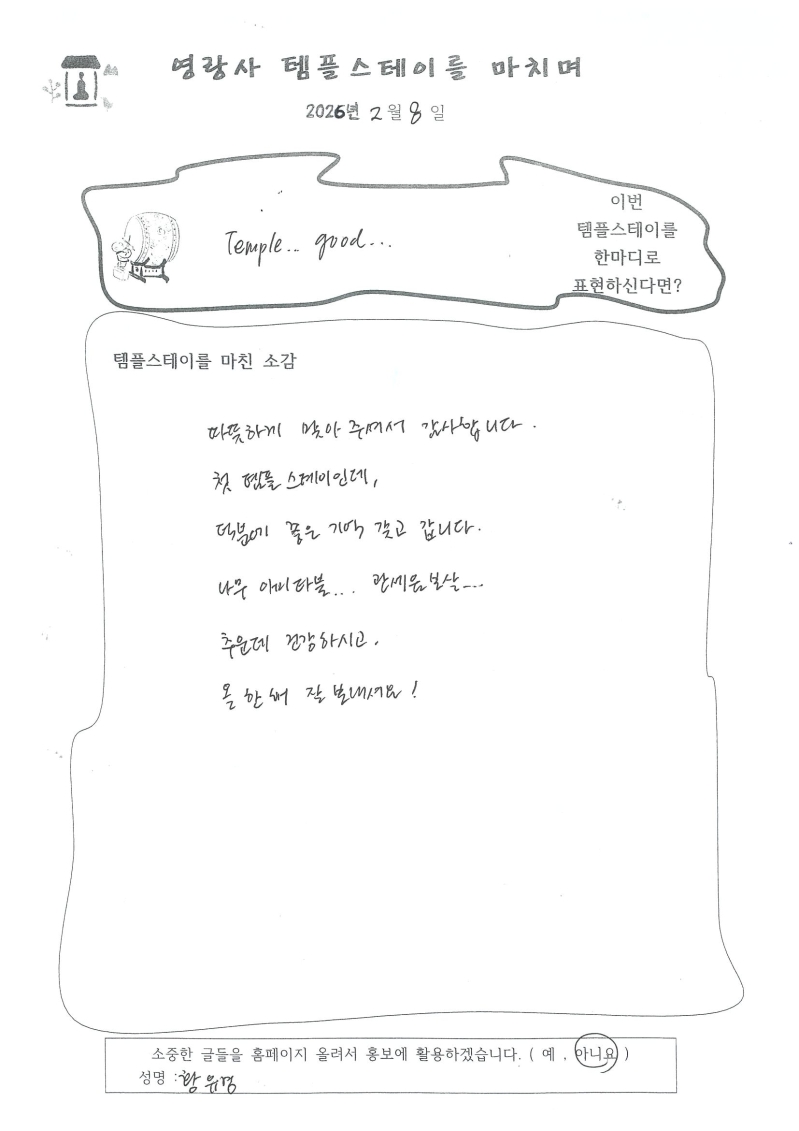 영랑사 템플스테이를 마치며
2026년 2월 8일
Temple... good...
이번
템플스테이를
한마디로
표현하신다면?
템플스테이를 마친 소감
따뜻하게 맞아 주셔서 감사합니다.
첫 템플스테이인데,
덕분에 좋은 기억 갖고 갑니다.
나무 아미타불... 관세음보살...
추운데 건강하시고,
올 한 해 잘 보내세요!
소중한 글들을 홈페이지 올려서 홍보에 활용하겠습니다. ( 예 , 아니요 )
성명 : 황유경